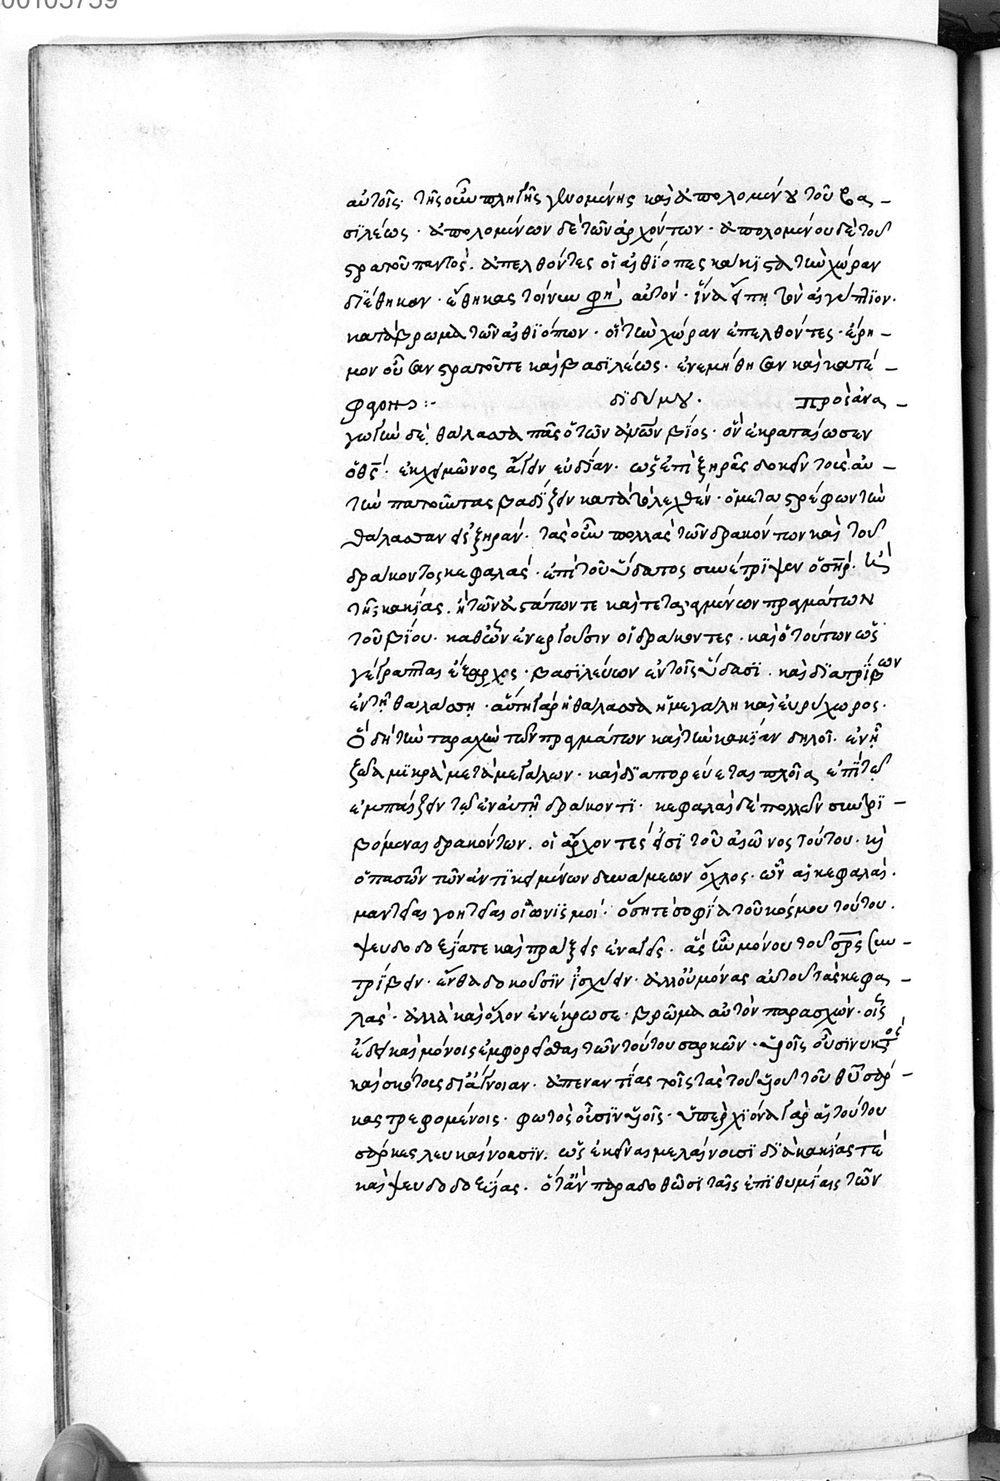 00105759
αὐτοῖς· τῆς οὖν πληγῆς γενομένης καὶ ἀπολομένου τοῦ βα-
σιλέως· ἀπολομένων δὲ τῶν ἀρχόντων· ἀπολομένου δὲ τοῦ
στρατοῦ παντός· ἀπελθόντες οἱ αἰθίοπες τὴν χώραν
διέθηκαν· ἔθηκας τοίνυν φησὶ αὐτόν· ἵνα εἴπῃ τὸν αἰγύπτιον·
κατάβρωμα τῶν αἰθιόπων· οἳ τὴν χώραν ἐπελθόντες· ἔρη-
μον οὖσαν στρατοῦ τε καὶ βασιλέως· ἐνεμήθησαν καὶ κατέ-
φαγον :- διδύμου. πρὸς ἀνα-
γωγὴν δὲ θάλασσα πᾶς ὁ τῶν ἀνων βίος· ὃν ἐκραταίωσεν
ὁ θς· ἐκ χειμῶνος εὐδίαν· ὡς ἐπὶ ξηρᾶς δοκεῖν τοὺς αὐ-
τὴν πατοῦντας βαδίζειν κατὰ τὸ λεχθέν· ὁ μεταστρέφων τὴν
θάλασσαν εἰς ξηράν· τὰς οὖν πολλὰς τῶν δρακόντων καὶ τοῦ
δράκοντος κεφαλάς· ἐπὶ τοῦ ὕδατος συνέτριψεν ὁ σηρ·
τῆς κακίας. ἢ τῶν ἀστάτων τε καὶ τεταραγμένων πραγμάτων
τοῦ βίου· καθ' ὧν ἐνεργοῦσιν οἱ δράκοντες· καὶ ὁ τούτων ὡς
γέγραπται ἔξαρχος· βασιλεύων ἐν τοῖς ὕδασι· καὶ διατρίβων
ἐν τῇ θαλάσσῃ· αὕτη γὰρ ἡ θάλασσα ἡ μεγάλη καὶ εὐρύχωρος·
ὃ δὴ τὴν ταραχὴν τῶν πραγμάτων καὶ τὴν κακίαν δηλοῖ· ἐν ᾗ
ζῷα μικρὰ μετὰ μεγάλων· καὶ διαπορεύεται πλοῖα ἐπὶ τῷ
ἐμπαίζειν τῷ ἐν αὐτῇ δράκοντι· κεφαλαὶ δὲ πολλῶν συντρι-
βόμεναι δρακόντων· οἱ ἄρχοντές εἰσι τοῦ αἰῶνος τούτου· καὶ
ὁ πασῶν τῶν ἀντικειμένων δυνάμεων ὄχλος· ὧν αἱ κεφαλαί·
μαντεῖαι γοητεῖαι οἰωνισμοί· ὅση τε σοφία τοῦ κόσμου τούτου·
ψευδοδοξίαι τε καὶ πράξεις ἐναγεῖς· ἃς ἦν μόνου τοῦ σρς συν-
τρίβειν· ἔνθα δοκοῦσιν ἰσχύειν· ἀλλ' οὐ μόνας αὐτοῦ τὰς κεφα-
λάς· ἀλλὰ καὶ ὅλον ἐνέκρωσε· βρῶμα αὐτὸν παρασχών· οἷς
ἔδει καὶ μόνοις ἐμφορεῖσθαι τῶν τούτου σαρκῶν· υἱοῖς οὖσιν νυκτὸς
καὶ σκότους δι' ἄγνοιαν· ἀπεναντίας τοῖς τὰς τοῦ υἱοῦ τοῦ θυ σάρ-
κας τρεφομένοις· φωτὸς οὖσιν υἱοῖς· ὑπὲρ χιόνα γὰρ αἱ τούτου
σάρκες λευκαίνουσιν· ὡς ἐκεῖναι μελαίνουσι διὰ κακίας τε
καὶ ψευδοδοξίας· ὅταν παραδοθῶσι ταῖς ἐπιθυμίαις τῶν